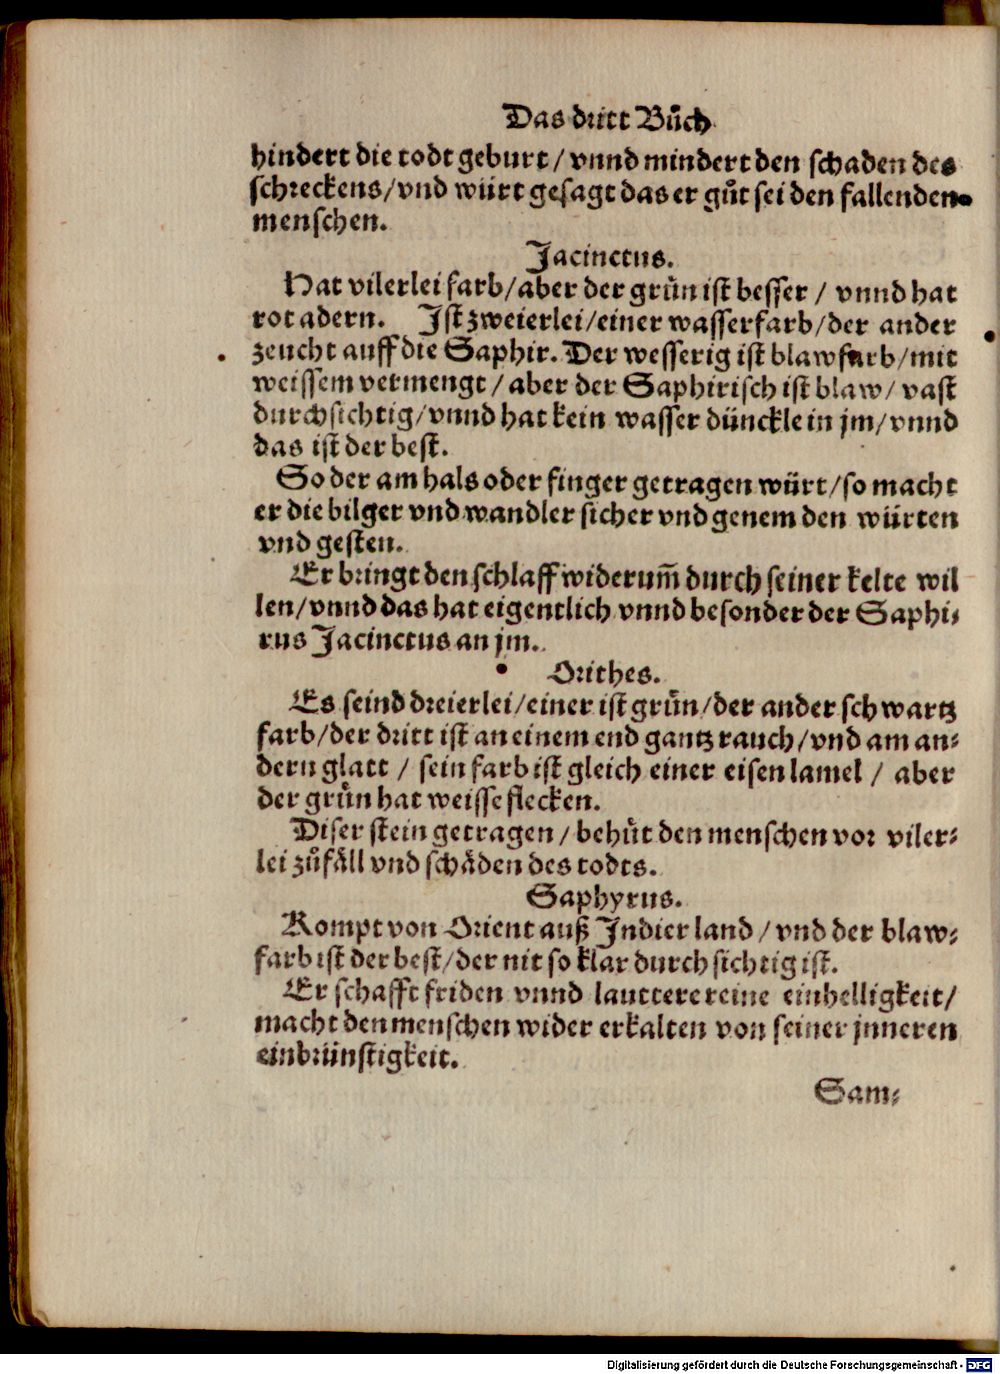 Das dritt Bůch
hindert die todt geburt / vnnd mindert den schaden des
schreckens / vnd würt gesagt das er gůt sei den fallenden
menschen.
Jacinctus.
Hat vilerlei farb / aber der grün ist besser / vnnd hat
rot adern. Ist zweierlei / einer wasserfarb / der ander
zeucht auff die Saphir. Der wesserig ist blawfarb / mit
weissem vermengt / aber der Saphirisch ist blaw / vast
durchsichtig / vnnd hat kein wasser dünckle in jm / vnnd
das ist der best.
So der am hals oder finger getragen würt / so macht
er die bilger vnd wandler sicher vnd genem den würten
vnd gesten.
Er bringt den schlaff widerum̃ durch seiner kelte wil
len / vnnd das hat eigentlich vnnd besonder der Saphi⸗
rus Jacinctus an jm.
Orithes.
Es seind dreierlei / einer ist grün / der ander schwartz
farb / der dritt ist an einem end gantz rauch / vnd am an⸗
dern glatt / sein farb ist gleich einer eisen lamel / aber
der grün hat weisse flecken.
Diser stein getragen / behüt den menschen vor viler⸗
lei zůfäll vnd schäden des todts.
Saphyrus.
Kompt von Orient auß Indier land / vnd der blaw⸗
farb ist der best / der nit so klar durchsichtig ist.
Er schafft friden vnnd lauttere reine einhelligkeit /
macht den menschen wider erkalten von seiner jnneren
einbrünstigkeit.
Sam⸗
Digitalisierung gefördert durch die Deutsche Forschungsgemeinschaft - DFG